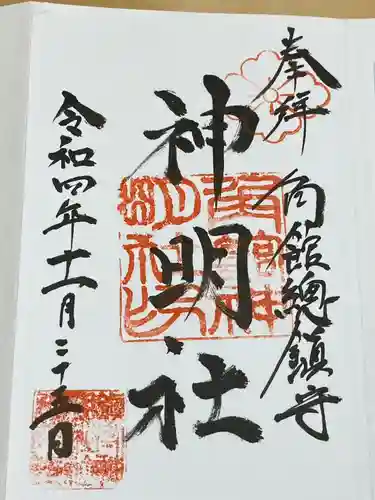 奉拝
角館總鎮守
神明社
令和四年十一月二十五日